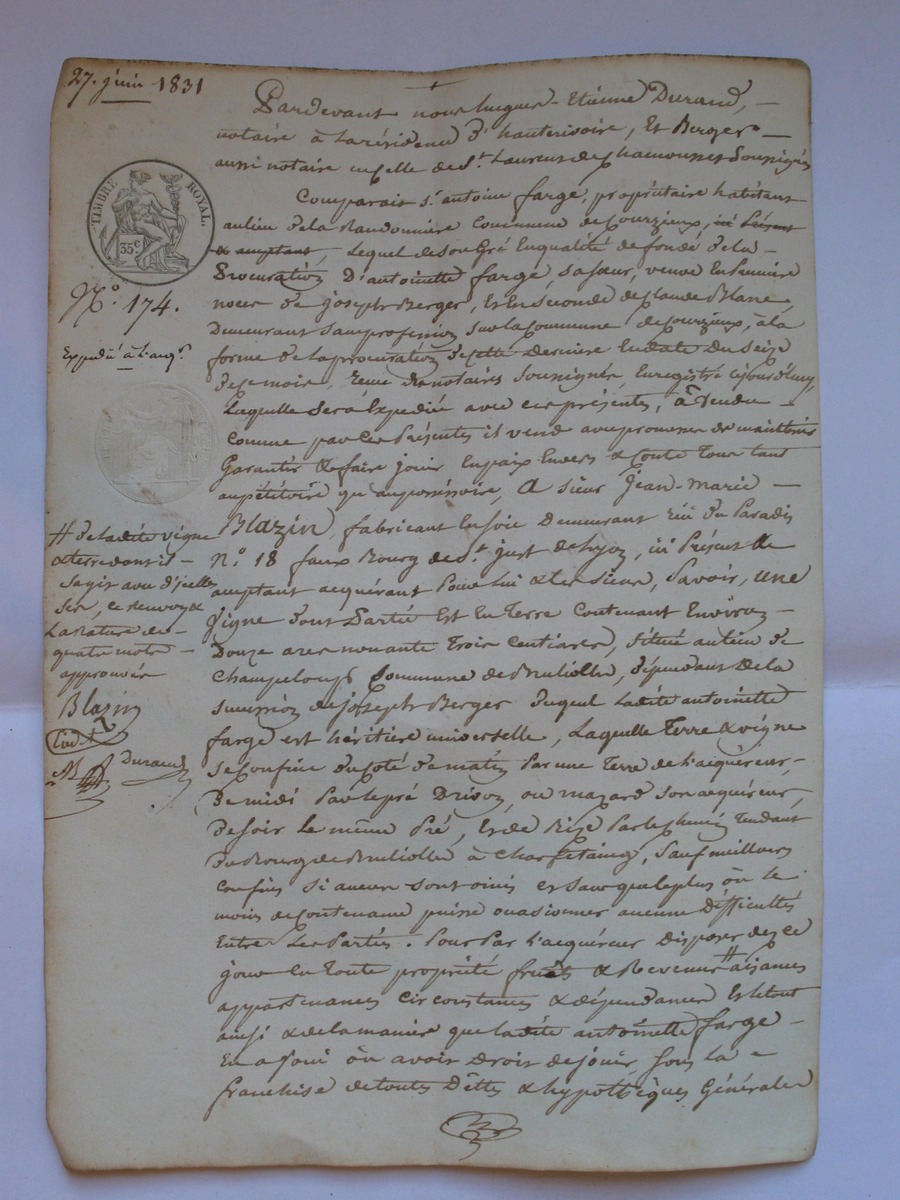 27. juin 1831
TIMBRE ROYAL.
35 c
N.° 174.
Expédié à l'acq.r
Pardevant nous hugues-Etienne Durand, -
notaire à la résidence d'hauterivoire, Et Berger -
aussi notaire en celle de St. Laurent de Chamousset Soussignés
Comparait Sr. antoine farge, propriétaire habitant
au lieu de la Randonnière Commune de Courzieux, ici Présent
& acceptant, Lequel de son Gré En qualité de fondé de la -
Procuration D'antoinette farge, sa sœur, veuve En première
noces de joseph Berger, Et En seconde de Claude Blanc,
Demeurant Sans profession Sur la Commune de Courzieux, à la
forme de la procuration de cette Dernière En date du Seize
de ce mois, reçue des notaires Soussignés, Enregistré cejourd'huy,
Laquelle Sera Expediée avec ces présentes, à vendu -
Comme par ces Présentes il vend avec promesse de maintenir
Garantir & faire jouir En paix Envers & Contre Tous tant
au pétitoire qu'au possessoire, A sieur Jean-Marie -
Blazin, fabricant En Soie Demeurant rue du Paradis
N.° 18 faux Bourg de St. just de Lyon, ici Présent &
acceptant acquérant Pour Lui & les siens, Savoir, une
Vigne dont Partie Est En Terre Contenant Environ -
Douze ares nonante Trois Centiares, Située au lieu de
Champeloup Commune de Brulliolles, dépendant de la
succession de joseph Berger duquel Ladite antoinette
farge est héritière universelle, Laquelle Terre & vigne
se Confine du Coté de matin Par une Terre de l'acquéreur,
de midi Par le pré Drivon, ou mazard son acquéreur,
de soir Le même Pré, Et de Bize Par le chemin Tendant
du Bourg de Brulliolles à Charpetaing, Sauf meilleurs
Confins Si aucun sont omis et sans que le plus ou le
moins de Contenance puisse ocasionner aucune difficultés
Entre Les Parties. Pour Par l'acquéreur disposer dez ce
jour En Toute propriété fruits & Revenus # aisances
appartenances Circonstances & dépendances Et le tout
ainsi & de la manière que ladite antoinette farge -
En a joui ou avoir Droit de jouir, Sous La -
franchise de toutes Dettes & hypothèques Générale
# de ladite vigne
& terre dont il -
s'agit avec d'icelles
ce renvoy &
La rature de -
quatre mots -
approuvés
Blazin
Durand